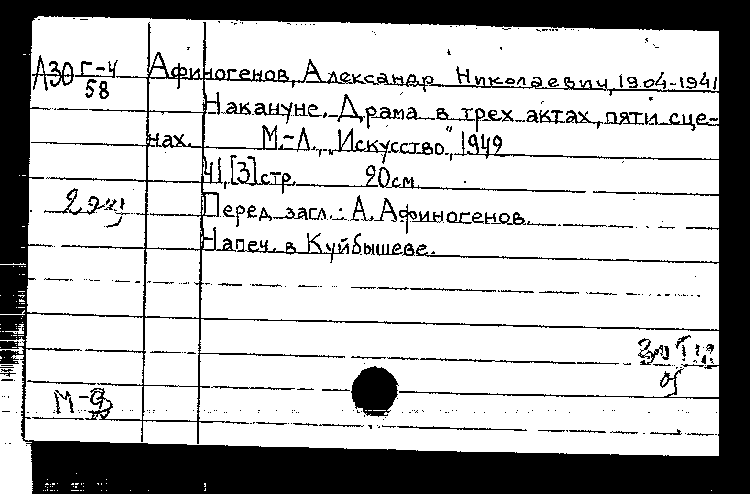 Л30 Г-4
58
Афиногенов, Александр Николаевич, 1904-1941
Накануне. Драма в трех актах, пяти сце-
нах. М.-Л., "Искусство", 1942
41, [3] стр. 20см.
2 экз
Перед загл.: А. Афиногенов.
Напеч. в Куйбышеве.
М-